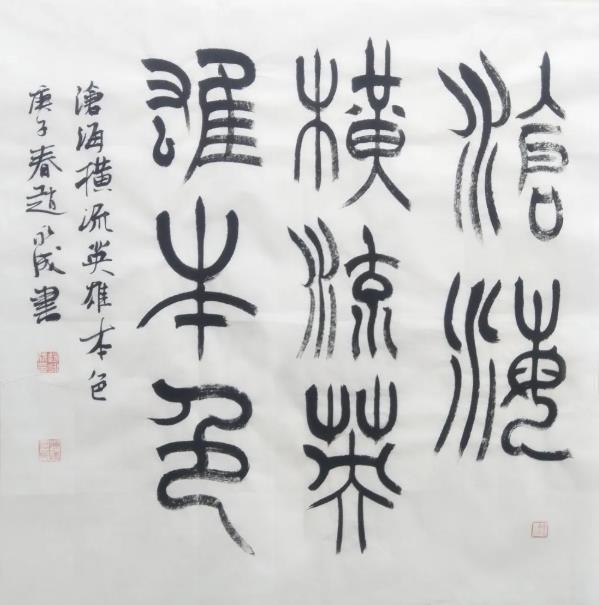 滄海
橫流英
雄本色
滄海橫流英雄本色
庚子春趙永成書